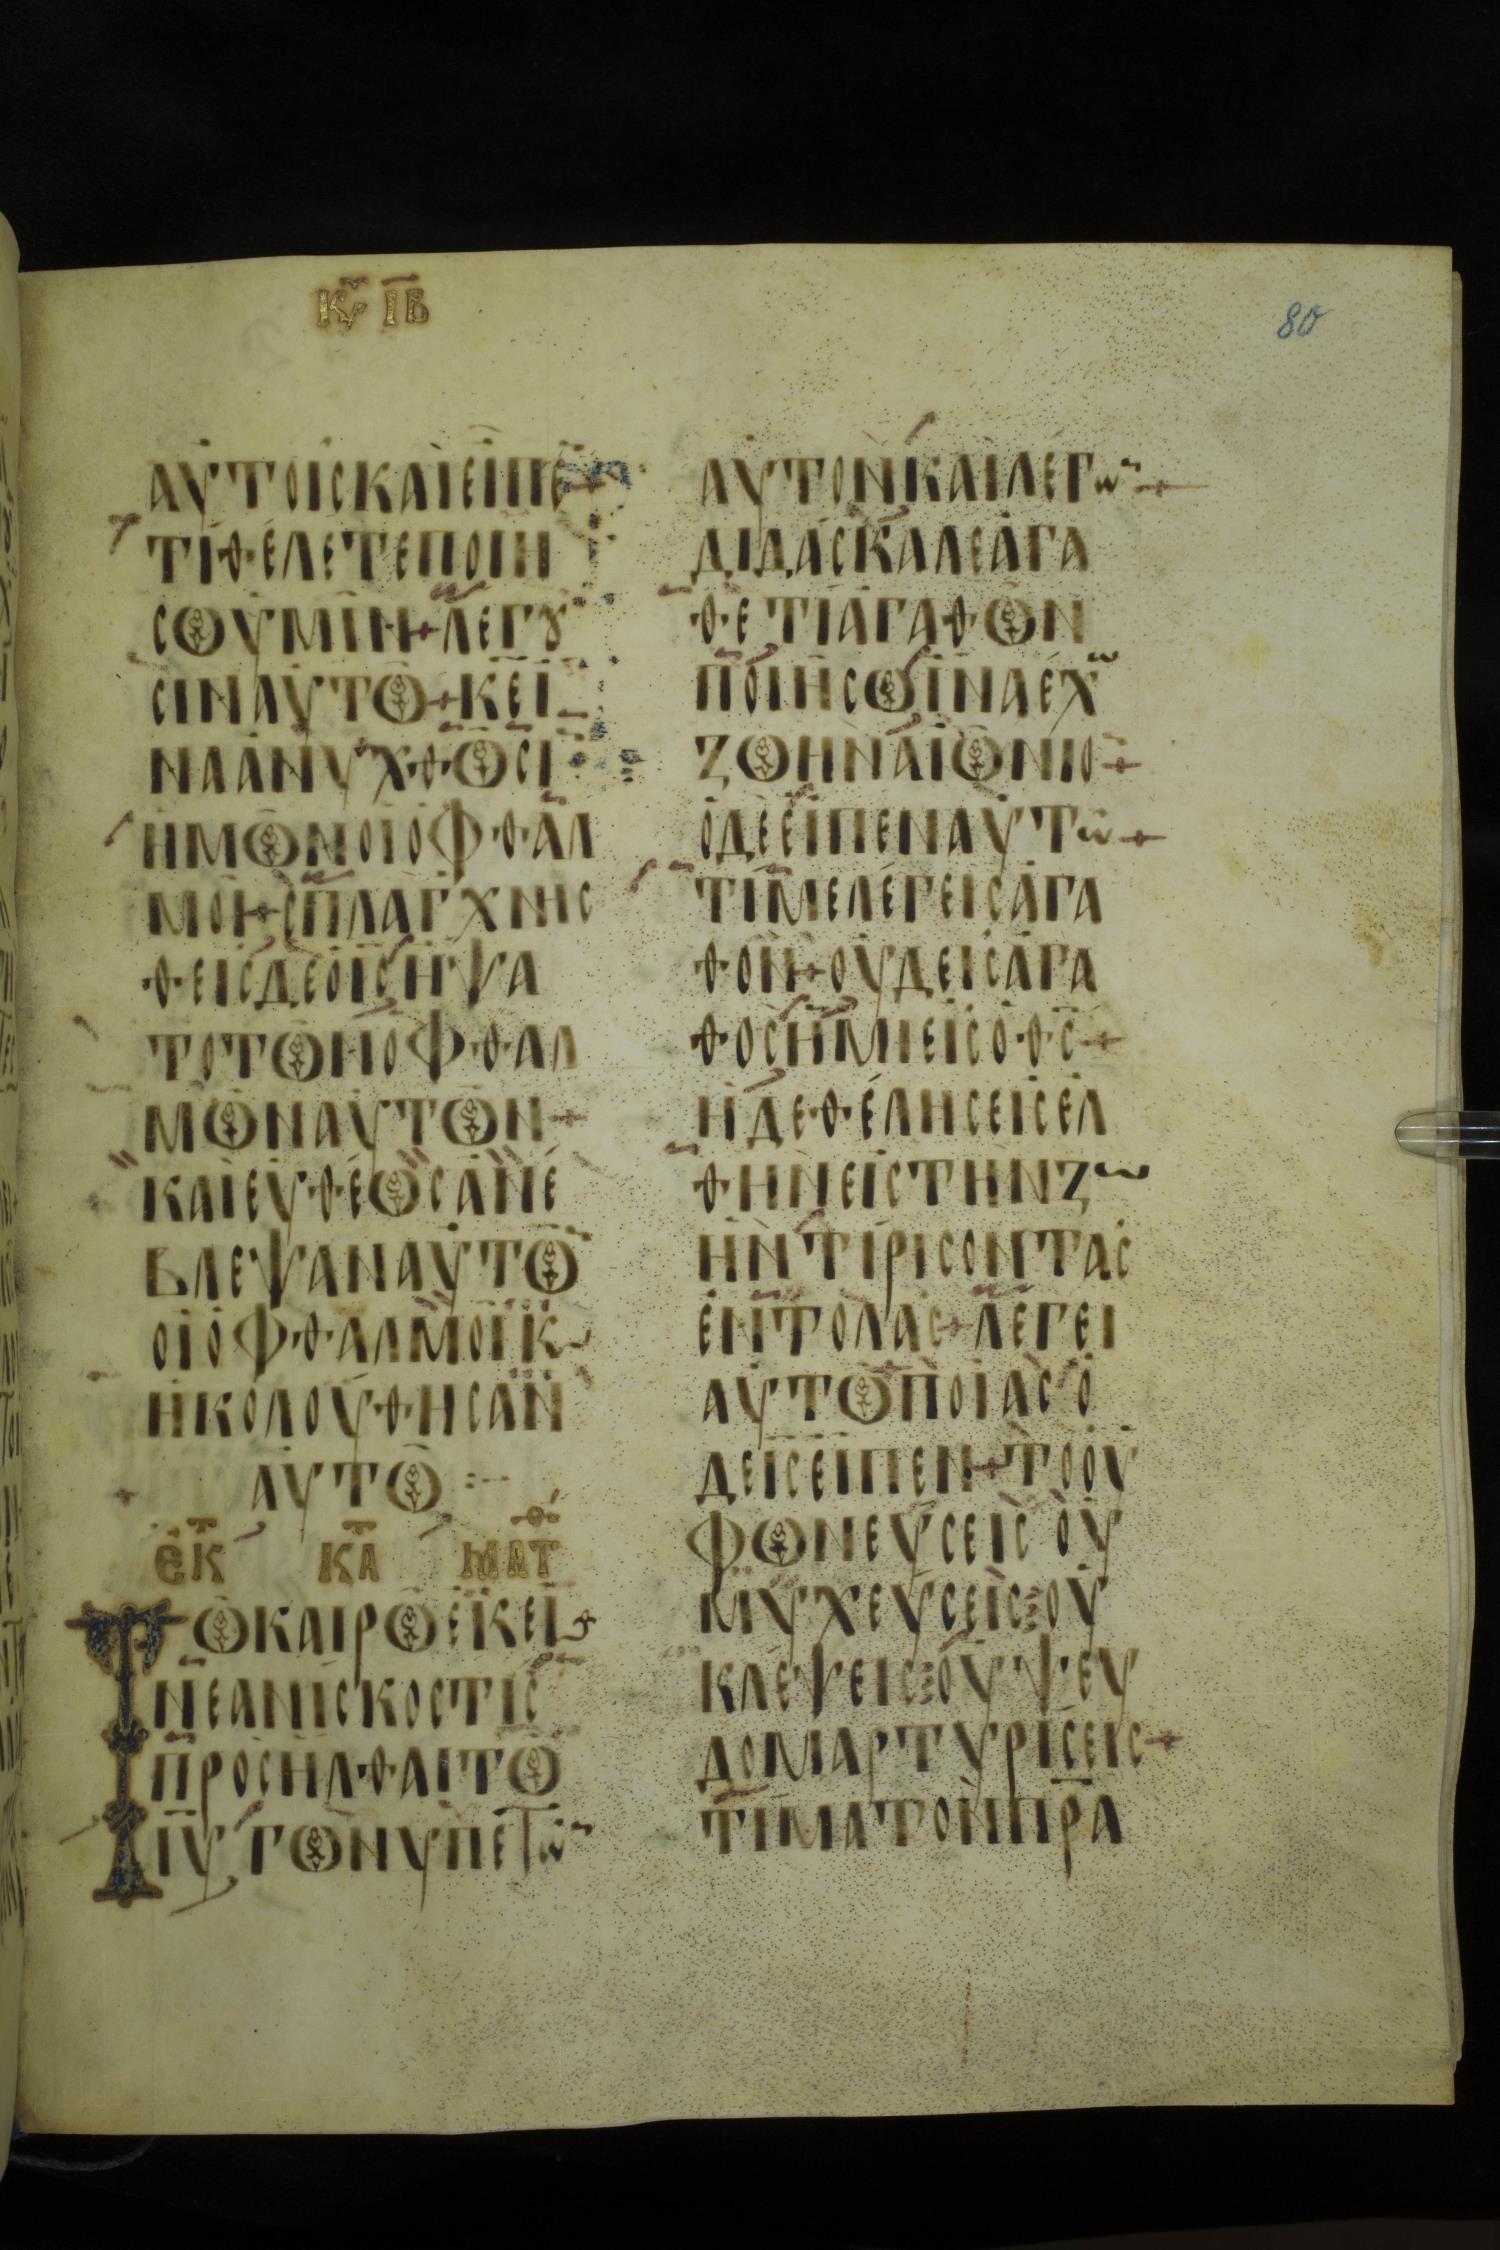 Κυ ΙΒ
80
ΑΥΤΟΙΣΚΑΙΕΙΠΕ
ΤΙΘΕΛΕΤΕΠΟΙΗ
ΣΩΥΜΙΝ+ΛΕΓȢ
ΣΙΝΑΥΤΩ+ΚΕΙ
ΝΑΑΝΥΧΘΩΣΙ
ΗΜΩΝΟΙΟΦΘΑΛ
ΜΟΙ+ΣΠΛΑΓΧΝΙΣ
ΘΕΙΣΔΕΟΙΣΗΨΑ
ΤΟΤΩΝΟΦΘΑΛ
ΜΩΝΑΥΤΩΝ+
ΚΑΙΕΥΘΕΩΣΑΝΕ
ΒΛΕΨΑΝΑΥΤΩ
ΟΙΟΦΘΑΛΜΟΙΚ
ΗΚΟΛΟΥΘΗΣΑΝ
ΑΥΤΩ :--
ΕΚ ΚΑ ΜΑΤΘ
ΤΩΚΑΙΡΩΕΚΕΙ
ΝΕΑΝΙΣΚΟΣΤΙΣ
ΠΡΟΣΗΛΘΑΙΤΩ
ΙΥ ΓΩΝΥΠΕΤΩ
ΑΥΤΟΝΚΑΙΛΕΓΩ+
ΔΙΔΑΣΚΑΛΕΑΓΑ
ΘΕΤΙΑΓΑΘΩΝ
ΠΟΙΗΣΩΙΝΑΕΧΩ
ΖΩΗΝΑΙΩΝΙΟ+
ΟΔΕΕΙΠΕΝΑΥΤΩ+
ΤΙΜΕΛΕΓΕΙΣΑΓΑ
ΘΟΝ+ΟΥΔΕΙΣΑΓΑ
ΘΟΣΗΜΙΕΙΣΟΘΣ+
ΗΔΕΘΕΛΗΣΕΙΣΕΛ
ΘΗΝΕΙΣΤΗΝΖΩ
ΗΝΤΙΡΙΣΟΝΤΑΣ
ΕΝΤΟΛΑΣ+ΛΕΓΕΙ
ΑΥΤΩΠΟΙΑΣΟ
ΔΕΙΣΕΙΠΕΝ+ΤΟΟΥ
ΦΩΝΕΥΣΕΙΣ ΟΥ
ΜΥΧΕΥΣΕΙΣ ΟΥ
ΚΛΕΨΕΙΣ ΟΥΨΕΥ
ΔΟΜΑΡΤΥΡΙΣΕΙΣ+
ΤΙΜΑΤΟΝΠΡΑ